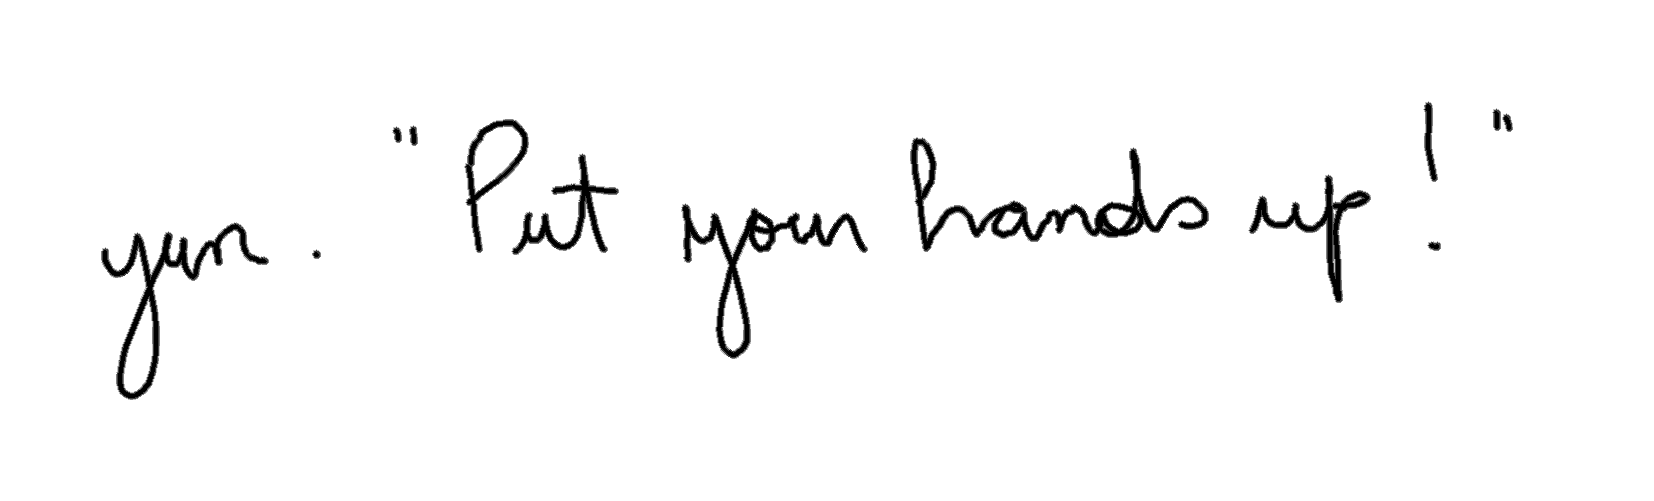 gun. "Put your hands up!"